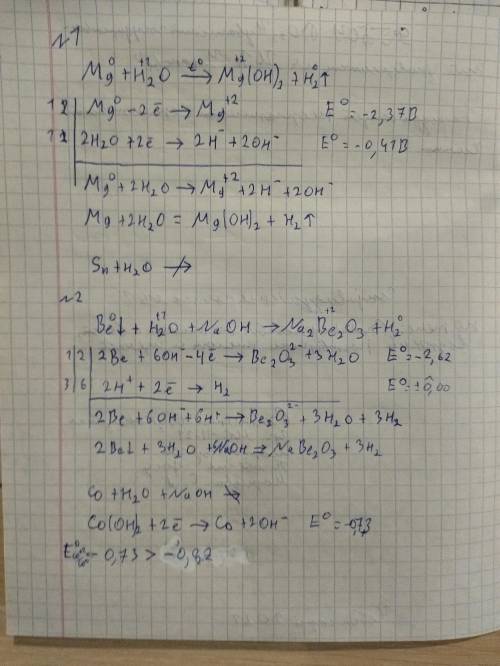 №1
Mg⁰ + H₂⁺¹O —t⁰→ Mg⁺²(OH)₂ + H₂⁰↑
Mg⁰ - 2ē → Mg⁺² E⁰ = -2,37В
2H₂O + 2ē → 2H⁻ + 2OH⁻ E⁰ = -0,41В
Mg⁰ + 2H₂O → Mg⁺² + 2H⁻ + 2OH⁻
Mg + 2H₂O = Mg(OH)₂ + H₂↑
Sn + H₂O ↛
№2
Be⁰↓ + H₂⁺¹O + NaOH → Na₂Be₂⁺²O₃ + H₂⁰
1|2 2Be + 6OH⁻ - 4ē → Be₂O₃²⁻ + 3H₂O E⁰ = -2,62
3|6 2H⁺ + 2ē → H₂ E⁰ = ±0,00
2Be + 6OH⁻ + 6H⁺ → Be₂O₃²⁻ + 3H₂O + 3H₂
2Be↓ + 3H₂O + NaOH → NaBe₂O₃ + 3H₂
Co + H₂O + NaOH ↛
Co(OH)₂ + 2ē → Co + 2OH⁻ E⁰ = -0,73
-0,73 > -0,82